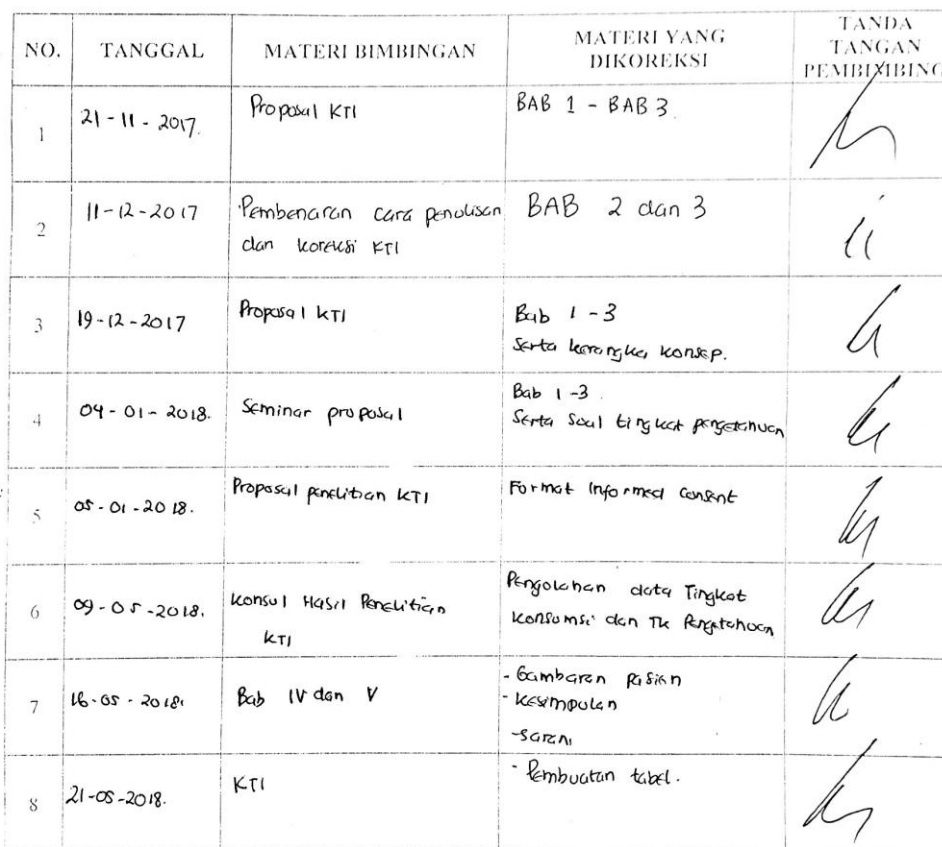 NO. TANGGAL MATERI BIMBINGAN MATERI YANG DIKOREKSI TANDA TANGAN PEMBIMBING
1 21-11-2017. Proposal KTI BAB 1 - BAB 3
2 11-12-2017 Pembenaran cara penulisan BAB 2 dan 3
dan koreksi KTI
3 19-12-2017 Proposal KTI Bab 1-3
Serta kerangka konsep.
4 04-01-2018. Seminar proposal Bab 1-3
Serta Soal tingkat pengetahuan
5 05-01-2018. Proposal penelitian KTI Format Informed Consent
6 09-05-2018. Konsul Hasil Penelitian Pengolahan data Tingkat
KTI Konsumsi dan Tk Pengetahuan
7 16-05-2018. Bab IV dan V - Gambaran Pasien
- Kesimpulan
- Saran
8 21-05-2018. KTI - Pembuatan tabel.